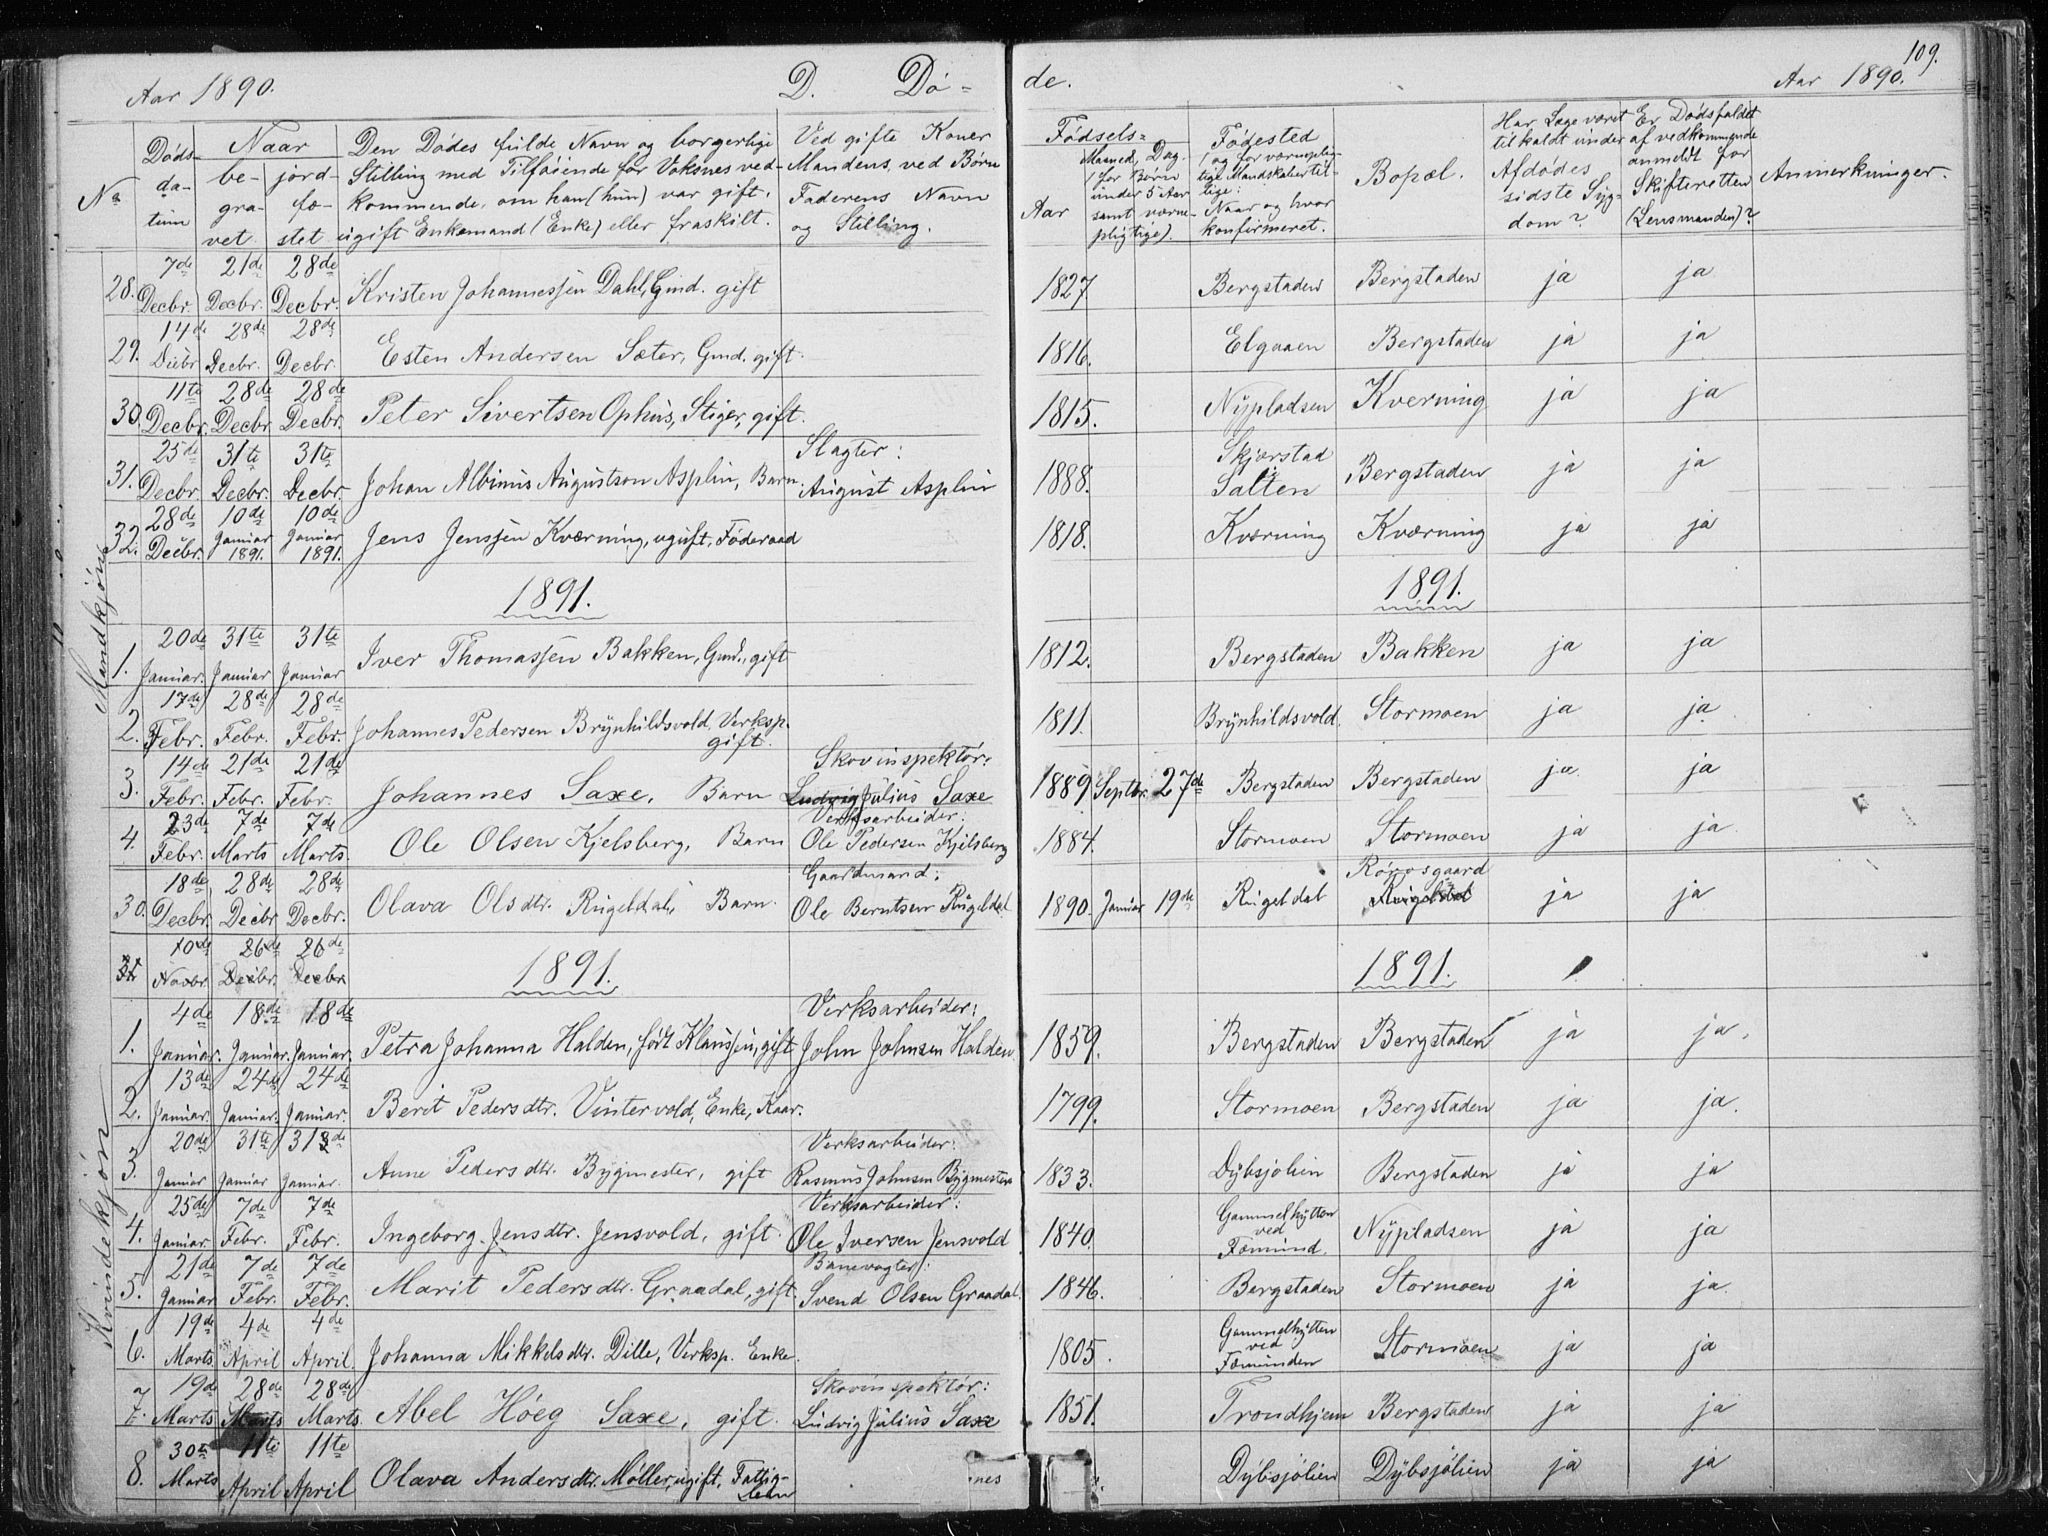 109.
Aar 1890. D. Dø- de. Aar 1890.
No Dødsdatum Naar begravet. jordfæstet Den Dødes fulde Navn og borgerlige Stilling med Tilføiende for Voksnes vedkommende, om han (hun) var gift, ugift Enkemand (Enke) eller fraskilt. Ved gifte Koner Mandens, ved Børn Faderens Navn og Stilling. Fødsels= Aar Maaned, Dag (for Børn under 5 Aar samt værnepligtige). Fødested (og for værnepligtige Mandskaber tillige: Naar og hvor konfirmeret. Bopæl. Har Læge været tilkaldt under Afdødes sidste Sygdom? Er Dødsfaldet af vedkommende anmeldt for Skifteretten (Lensmanden)? Anmerkninger.
Mandkjøn
28. 7de Decbr. 21de Decbr. 28de Decbr. Kristen Johannessen Dahl, Gmd. gift 1827. Bergstaden Bergstaden ja ja
29. 14de Decbr 28de Decbr. 28de Decbr. Esten Andersen Sæter, Gmd. gift. 1816. Elgaaen Bergstaden ja ja
30. 11te Decbr. 28de Decbr. 28de Decbr. Peter Sivertsen Ophus, Stiger, gift. 1815. Nypladsen Kverning ja ja
31. 25de Decbr. 31te Decbr. 31te Decbr. Johan Albinus Augustson Asplin, Barn. Slagter: August Asplin 1888. Skjerstad Salten Bergstaden ja ja
32. 28de Decbr. 10de Januar 1891. 10de Januar 1891. Jens Jenssen Kværning, ugift, Føderaad 1818. Kværning Kværning ja ja
1891. 1891.
1. 20de Januar. 31te Januar 31te Januar Iver Thomassen Bakken, Gmd., gift 1812. Bergstaden Bakken ja ja
2. 17de Febr. 28de Febr. 28de Febr. Johannes Pedersen Brynhildsvold, Verksp. gift. 1811. Brynhildsvold. Stormoen ja ja
3. 14de Febr. 21de Febr. 21de Febr. Johannes Saxe, Barn Skovinspektør: Ludvig Julius Saxe 1889 Septbr. 27de Bergstaden Bergstaden ja ja
4. 23de Febr. 7de Marts 7de Marts. Ole Olsen Kjelsberg, Barn Verksarbeider: Ole Pedersen Kjelsberg 1884. Stormoen Stormoen ja ja
Kvindekjøn
30. 18de Decbr. 28de Decbr 28de Decbr. Olava Olsdtr. Rugeldal, Barn. Gaardmand: Ole Berntsen Rugeldal 1890. Januar 19de Rugeldal Rørosgaard Rugeldal ja ja
31. 10de Novbr. 26de Decbr. 26de Decbr 1891. 1891.
1. 4de Januar. 18de Januar. 18de Januar. Petra Johanna Halden, født Klausen, gift Verksarbeider: John Johnsen Halden. 1859. Bergstaden Bergstaden ja ja.
2. 13de Januar. 24de Januar. 24de Januar. Berit Pedersdtr. Vintervold, Enke, Kaar. 1799. Stormoen Bergstaden ja ja.
3. 20de Januar 31te Januar 31te Januar. Anne Pedersdtr. Bygmester, gift Verksarbeider: Rasmus Johnsen Bygmester 1833. Dybsjølien Bergstaden ja ja
4. 25de Januar. 7de Febr. 7de Febr. Ingeborg Jensdtr. Jensvold, gift. Verksarbeider: Ole Iversen Jensvold 1840. Gammelhytten ved Fæmund. Nypladsen ja ja
5. 21de Januar 7de Febr. 7de Febr. Marit Pedersdtr. Graadal, gift. Banevogter: Svend Olsen Graadal. 1846. Bergstaden Stormoen ja ja.
6. 19de Marts 4de April 4de April. Johanna Mikkelsdtr. Dille, Verksp. Enke. 1805. Gammelhytten ved Fæmunden Stormoen ja ja
7. 19de Marts 28de Marts 28de Marts. Abel Høeg Saxe, gift. Skovinspektør: Ludvig Julius Saxe 1851. Trondhjem Bergstaden ja ja
8. 30te Marts 11te April 11te April Olava Andersdtr. Møller, ugift, Fattiglem Dybsjølien Dybsjølien ja ja